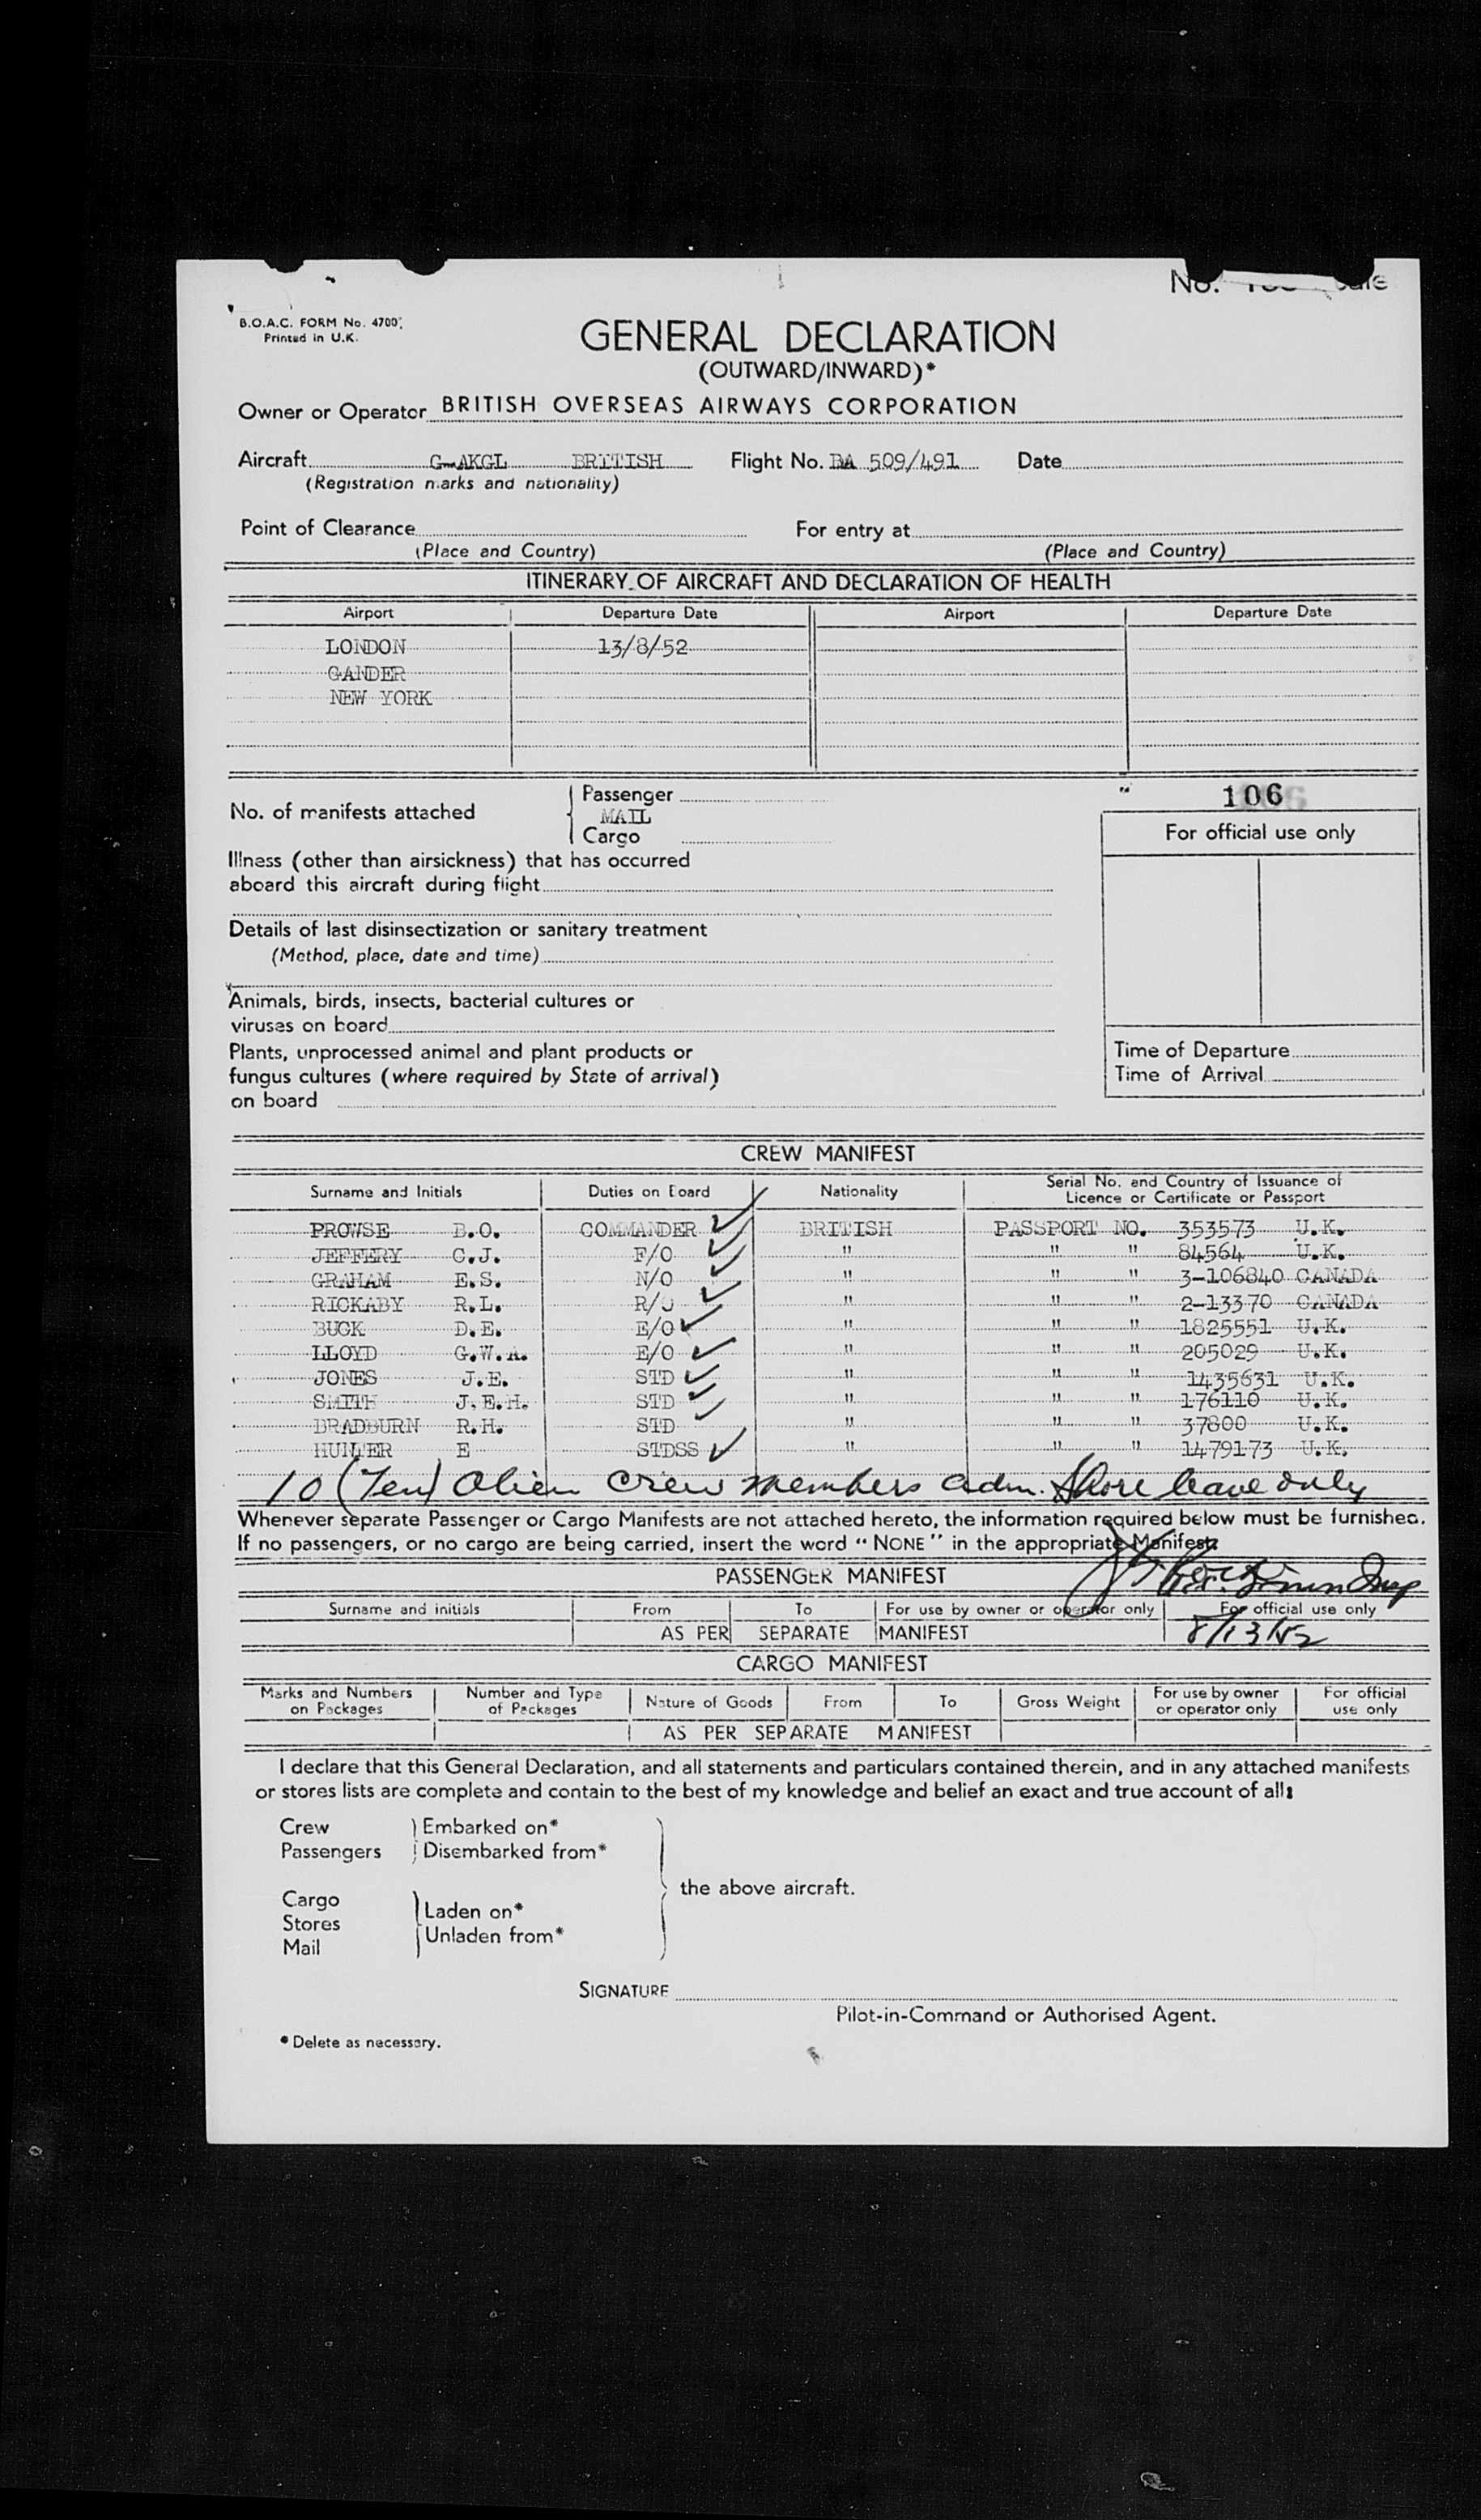 No.
B.O.A.C. FORM No. 4700
Printed in U.K.
GENERAL DECLARATION
(OUTWARD/INWARD)*
Owner or Operator BRITISH OVERSEAS AIRWAYS CORPORATION
Aircraft G-AKGL BRITISH Flight No. BA 509/491 Date
(Registration marks and nationality)
Point of Clearance For entry at
(Place and Country) (Place and Country)
ITINERARY OF AIRCRAFT AND DECLARATION OF HEALTH
Airport Departure Date Airport Departure Date
LONDON 13/8/52
GANDER
NEW YORK
106
No. of manifests attached { Passenger
MAIL
Cargo
For official use only
Illness (other than airsickness) that has occurred
aboard this aircraft during flight
Details of last disinsectization or sanitary treatment
(Method, place, date and time)
Animals, birds, insects, bacterial cultures or
viruses on board
Plants, unprocessed animal and plant products or
fungus cultures (where required by State of arrival)
on board
Time of Departure
Time of Arrival
CREW MANIFEST
Surname and Initials Duties on Board Nationality Serial No. and Country of Issuance of
Licence or Certificate or Passport
PROWSE B.O. COMMANDER BRITISH PASSPORT NO. 353573 U.K.
JEFFERY C.J. F/O " " " 84564 U.K.
GRAHAM E.S. N/O " " " 3-106840 CANADA
RICKABY R.L. R/O " " " 2-13370 CANADA
BUCK D.E. E/O " " " 1825551 U.K.
LLOYD G.W.A. E/O " " " 205029 U.K.
JONES J.E. STD " " " 1435631 U.K.
SMITH J.E.H. STD " " " 176110 U.K.
BRADBURN R.H. STD " " " 37800 U.K.
HUNTER E STDSS " " " 1479173 U.K.
10 (Ten) Alien Crew members adm. Shore leave only
Whenever separate Passenger or Cargo Manifests are not attached hereto, the information required below must be furnished.
If no passengers, or no cargo are being carried, insert the word "NONE" in the appropriate Manifest.
PASSENGER MANIFEST
Surname and initials From To For use by owner or operator only For official use only
AS PER SEPARATE MANIFEST 8/13/52
CARGO MANIFEST
Marks and Numbers on Packages Number and Type of Packages Nature of Goods From To Gross Weight For use by owner or operator only For official use only
AS PER SEPARATE MANIFEST
I declare that this General Declaration, and all statements and particulars contained therein, and in any attached manifests
or stores lists are complete and contain to the best of my knowledge and belief an exact and true account of all:
Crew } Embarked on*
Passengers } Disembarked from*
the above aircraft.
Cargo
Stores } Laden on*
Mail } Unladen from*
SIGNATURE
Pilot-in-Command or Authorised Agent.
* Delete as necessary.